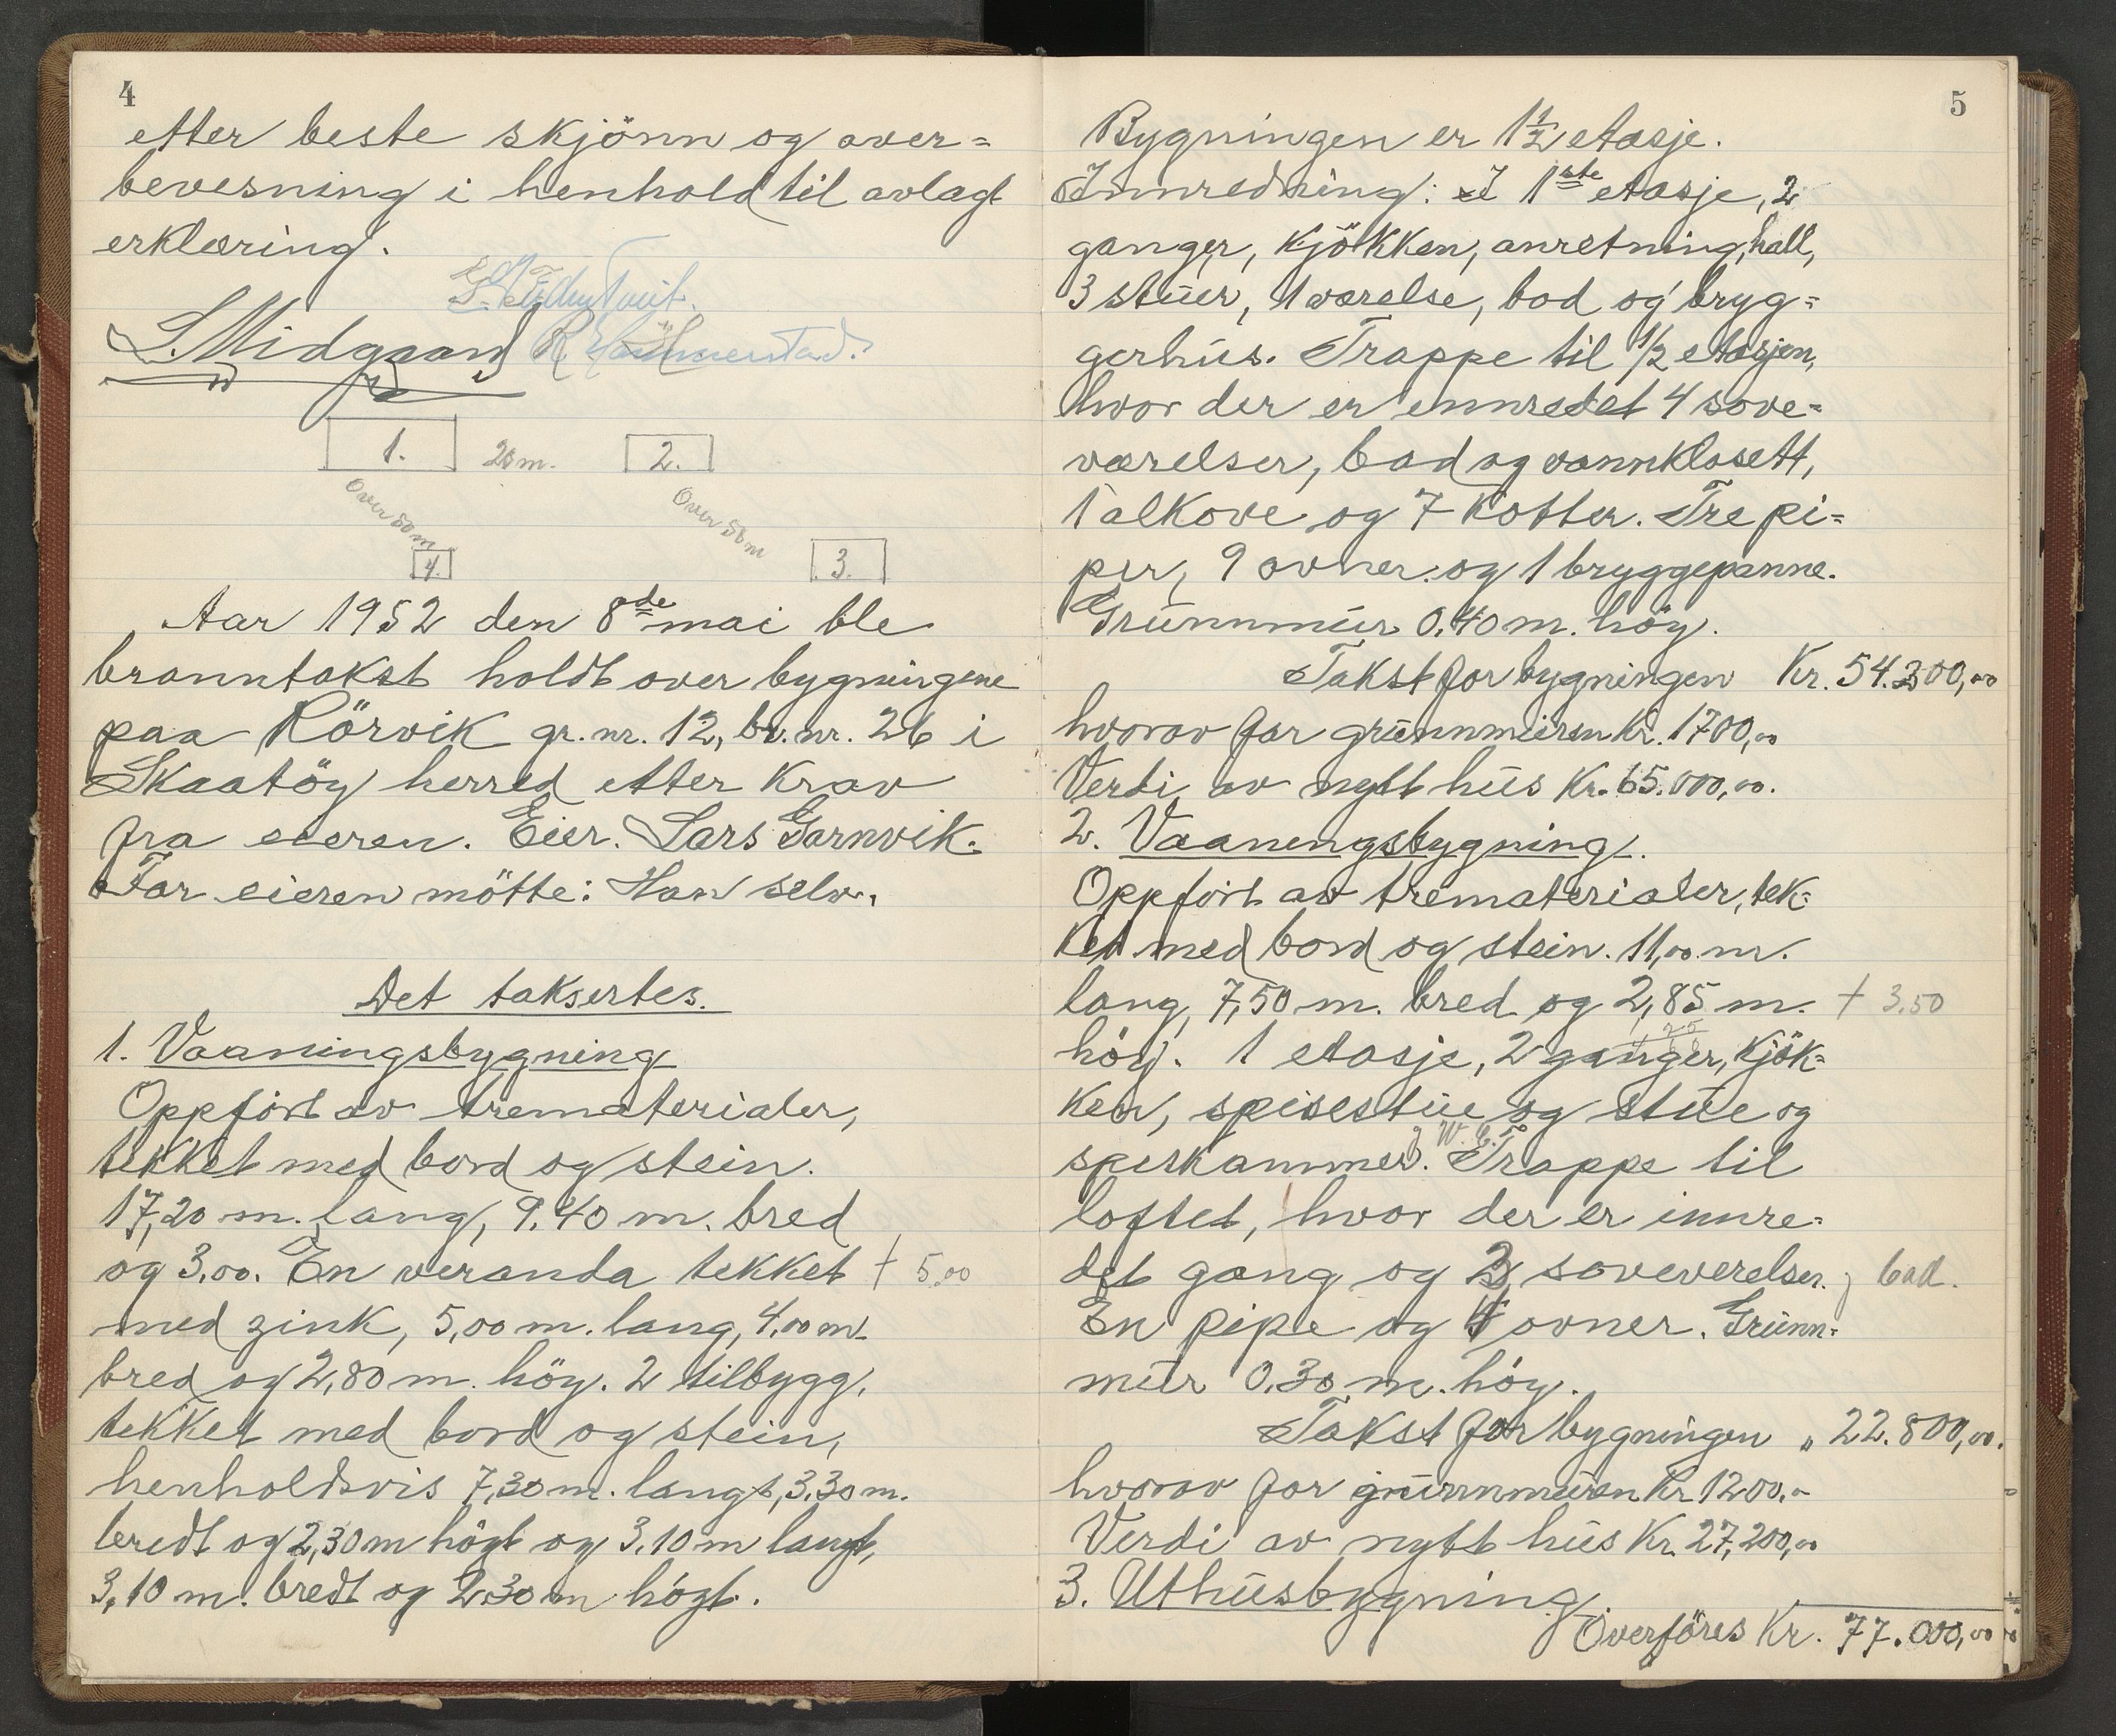 4
etter beste skjönn og over=
bevesning i henhold til avlagt
erklæring.
L. Midgaard R.
1. 20 m. 2.
Over 50 m Over 50 m
4. 3.
Aar 1952 den 8de mai ble
branntakst holdt over bygningene
paa Rörvik gr. nr. 12, br. nr. 26 i
Skaatöy herred etter krav
fra eieren. Eier. Lars Garnvik.
For eieren mötte: Han selv.
Det taksertes.
1. Vaaningsbygning
Oppfört av trematerialer,
tekket med bord og stein.
17,20 m. lang, 9.40 m. bred
og 3.00. En veranda tekket + 5.00
med zink, 5,00 m. lang, 4,00 m.
bred og 2,80 m. höy. 2 tilbygg,
tekket med bord og stein,
henholdsvis 7,30 m. langt, 3,30 m.
bredt og 2,30 m högt og 3.10 m langt,
3,10 m. bredt og 2.30 m högt.
5
Bygningen er 1 1/2 etasje.
Innredning: I 1ste etasje, 2
ganger, kjökken, anretning, hall,
3 stuer, 1 værelse, bod og bryg=
gerhus. Trappe til 1/2 etasjen,
hvor der er innredet 4 sove=
værelser, bad og vannklosett,
1 alkove og 7 kotter. Tre pi=
per, 9 ovner og 1 bryggepanne.
Grunnmur 0.40 m. höy.
Takst for bygningen Kr. 54.200,00
hvorav for grunnmuren Kr. 1700,00
Verdi av nytt hus Kr. 65.000,00.
2. Vaaningsbygning.
Oppfört av trematerialer, tek=
ket med bord og stein. 11,00 m.
lang, 7,50 m. bred og 2,85 m. + 3.50
höy. 1 etasje, 2 ganger, kjök=
ken, spisestue og stue og
spiskammer. W.C. Trappe til
loftet, hvor der er innre=
det gang og 3 soveverelser. bad.
En pipe og 4 ovner. Grunn=
mur 0.30 m. höy.
Takst for bygningen " 22.800,00.
hvorav for grunnmuren Kr 1200.-
Verdi av nytt hus Kr. 27,200,00
3. Uthusbygning.
Overföres Kr. 77.000,00